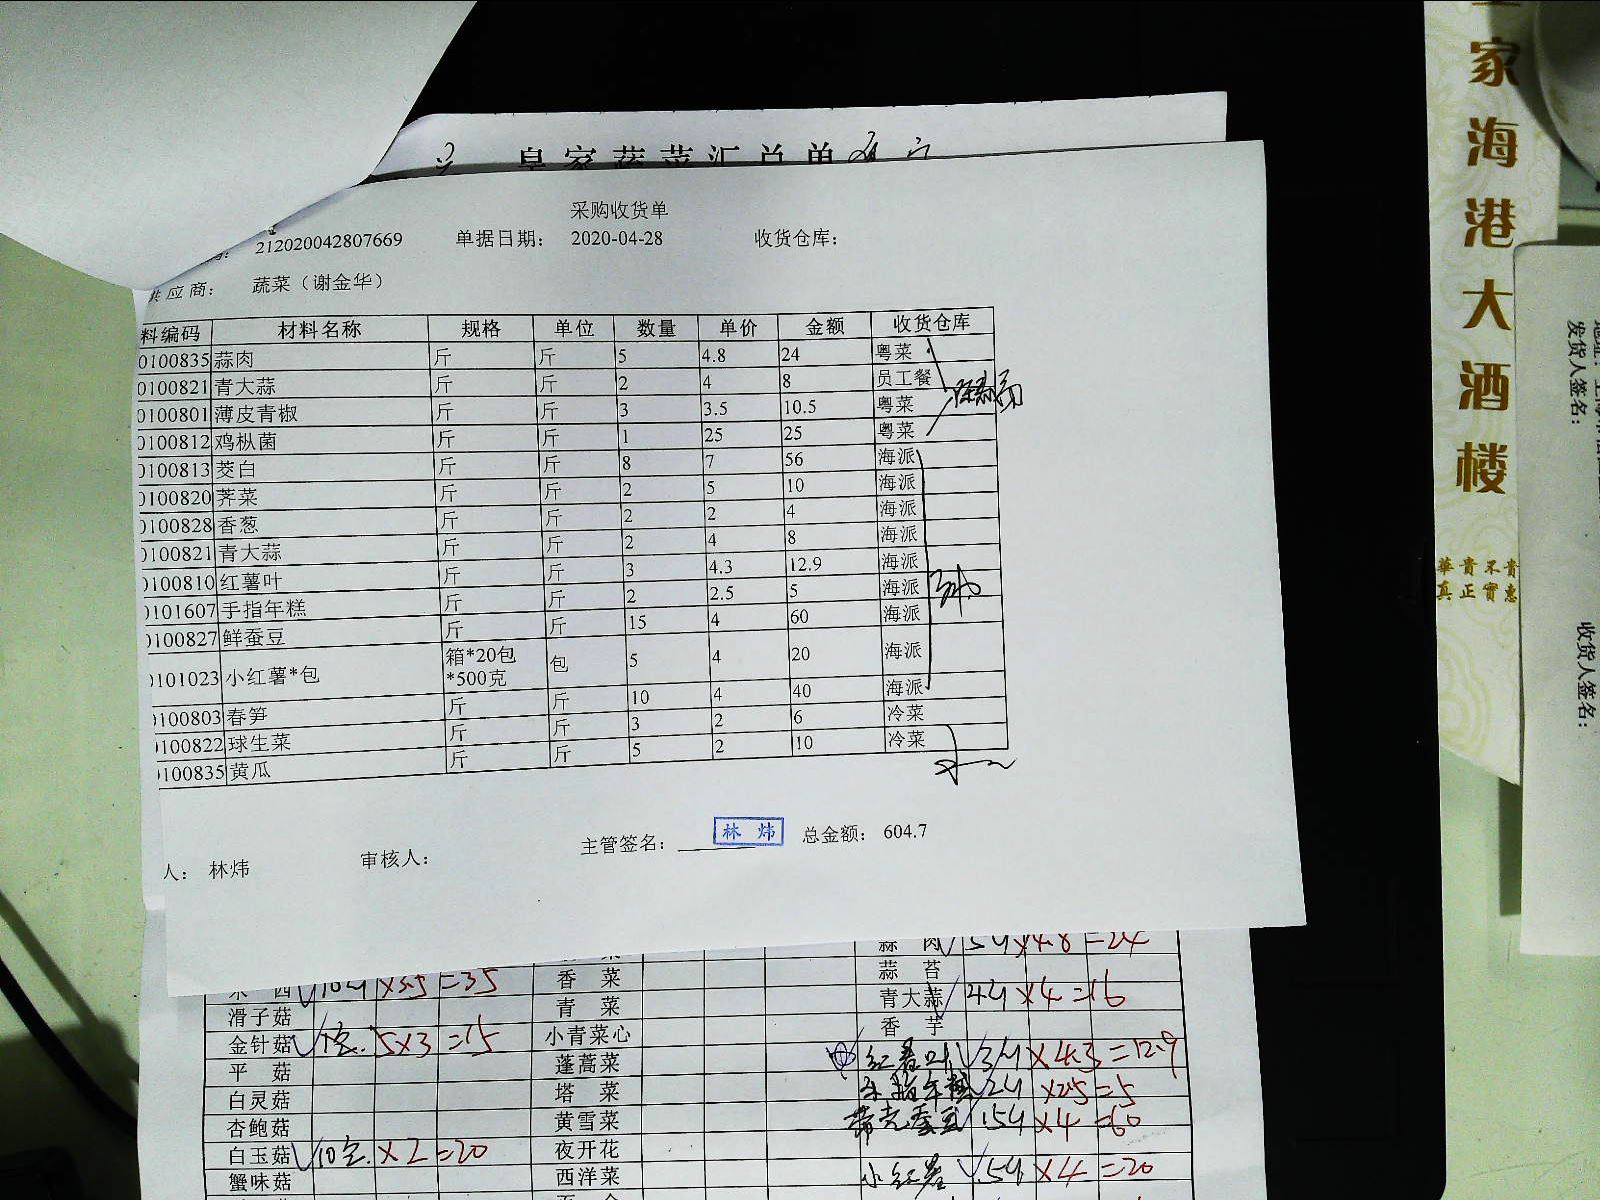 皇家蔬菜汇总单
采购收货单
212020042807669 单据日期： 2020-04-28 收货仓库：
供应商： 蔬菜（谢金华）
料编码 材料名称 规格 单位 数量 单价 金额 收货仓库
0100835 蒜肉 斤 斤 5 4.8 24 粤菜
0100821 青大蒜 斤 斤 2 4 8 员工餐
0100801 薄皮青椒 斤 斤 3 3.5 10.5 粤菜
0100812 鸡枞菌 斤 斤 1 25 25 粤菜
0100813 茭白 斤 斤 8 7 56 海派
0100820 荠菜 斤 斤 2 5 10 海派
0100828 香葱 斤 斤 2 2 4 海派
0100821 青大蒜 斤 斤 2 4 8 海派
0100810 红薯叶 斤 斤 3 4.3 12.9 海派
0101607 手指年糕 斤 斤 2 2.5 5 海派
0100827 鲜蚕豆 斤 斤 15 4 60 海派
0101023 小红薯*包 箱*20包*500克 包 5 4 20 海派
0100803 春笋 斤 斤 10 4 40 海派
0100822 球生菜 斤 斤 3 2 6 冷菜
0100835 黄瓜 斤 斤 5 2 10 冷菜
人： 林炜 审核人： 主管签名： 林炜 总金额： 604.7
蒜肉 5斤×4.8=24
香菜 蒜苔
10斤×3.5=35
滑子菇 青菜 青大蒜 4斤×4=16
金针菇 5×3=15 小青菜心 香芋
平菇 蓬蒿菜 红薯叶 3斤×4.3=12.9
白灵菇 塔菜 手指年糕 2斤×2.5=5
杏鲍菇 黄雪菜 带壳蚕豆 15斤×4=60
白玉菇 10包×2=20 夜开花
蟹味菇 西洋菜 小红薯 5斤×4=20
家海港大酒楼
華貴不貴
真正實惠
发货人签名：
收货人签名：